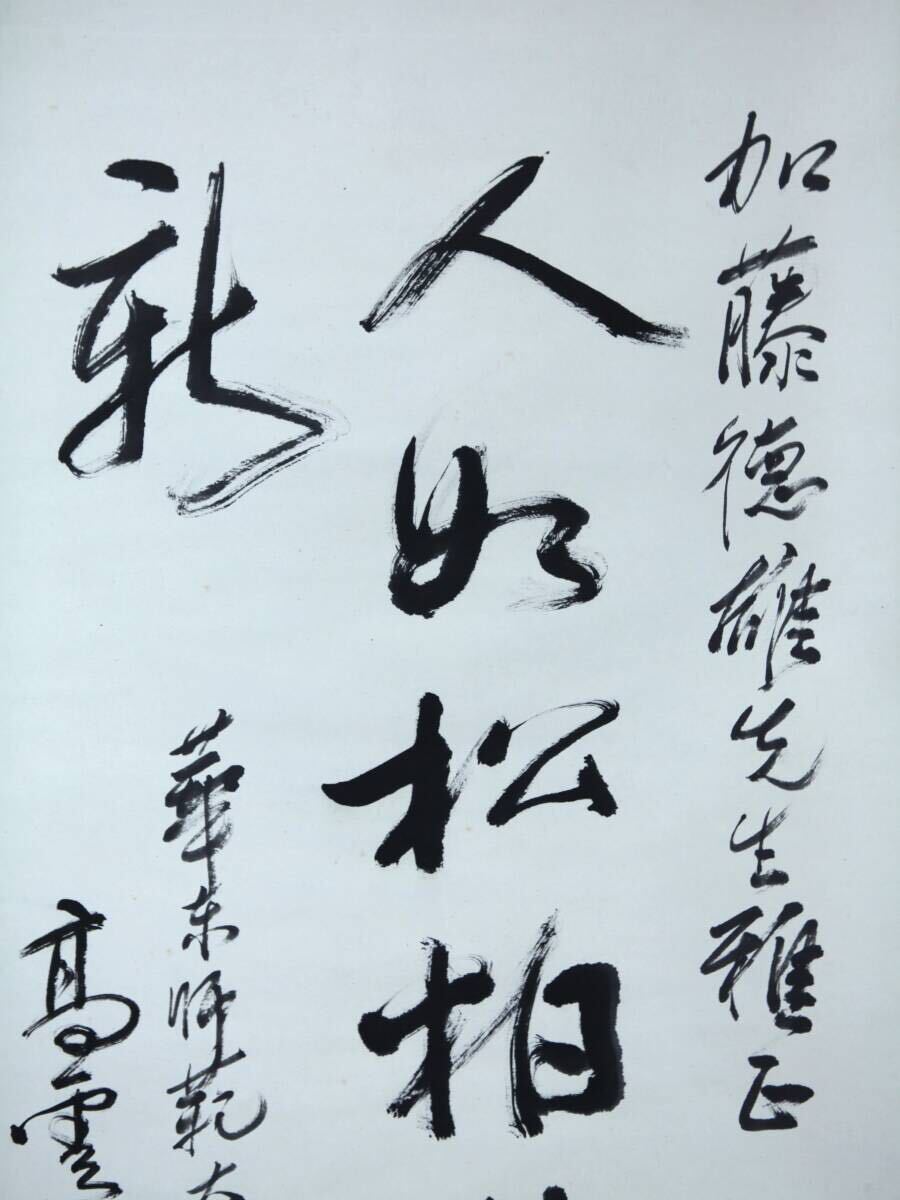 加藤德雄先生雅正
人如松柏
新
華东师範大
高雲